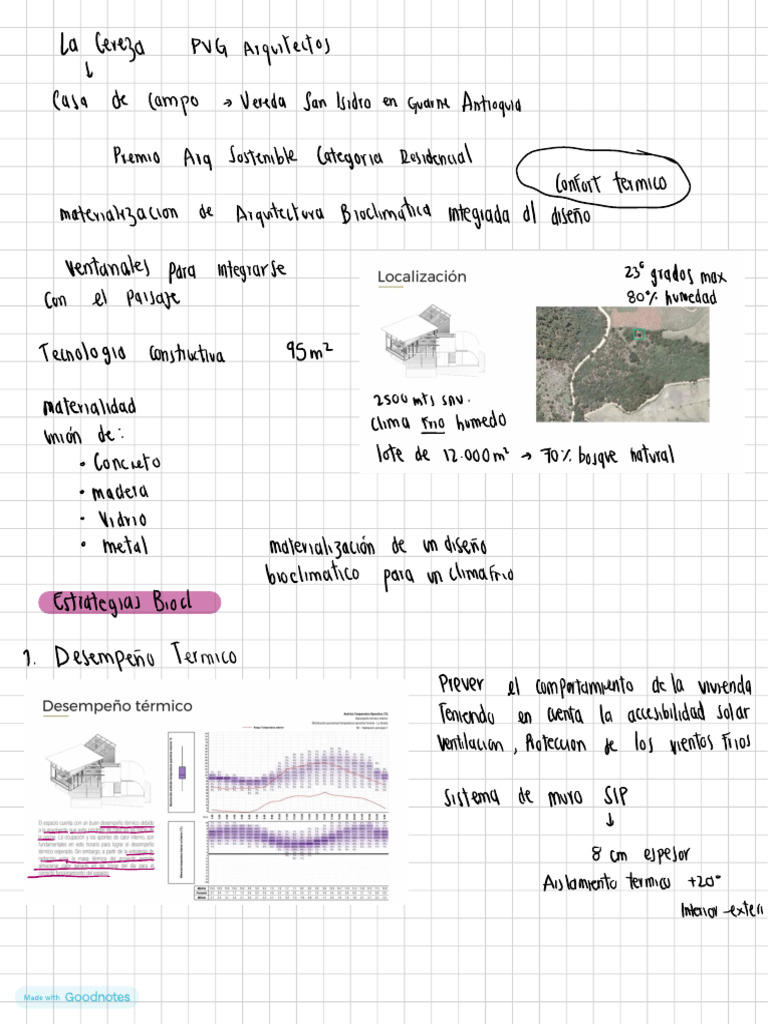 La Cereza PVG Arquitectos
↓
Casa de campo → Vereda San Isidro en Guarne Antioquia
Premio Arq Sostenible Categoria Residencial
Confort termico
materializacion de Arquitectura Bioclimática integrada al diseño
Ventanales para integrarse
con el paisaje
Localización
23° grados max
80% humedad
Tecnologia constructiva 95 m²
2500 mts snv.
clima frio humedo
lote de 12.000 m² → 70% bosque natural
materialidad
unión de:
• Concreto
• madera
• Vidrio
• metal
materialización de un diseño
bioclimatico para un clima frio
Estrategias Biocl
1. Desempeño Termico
Desempeño térmico
El espacio cuenta con un buen desempeño térmico debido
Prever el comportamiento de la vivienda
Teniendo en cuenta la accesibilidad solar
Ventilacion, Proteccion de los vientos frios
Sistema de muro SIP
↓
8 cm espesor
Aislamiento termico +20°
Interior-exteri
Made with Goodnotes